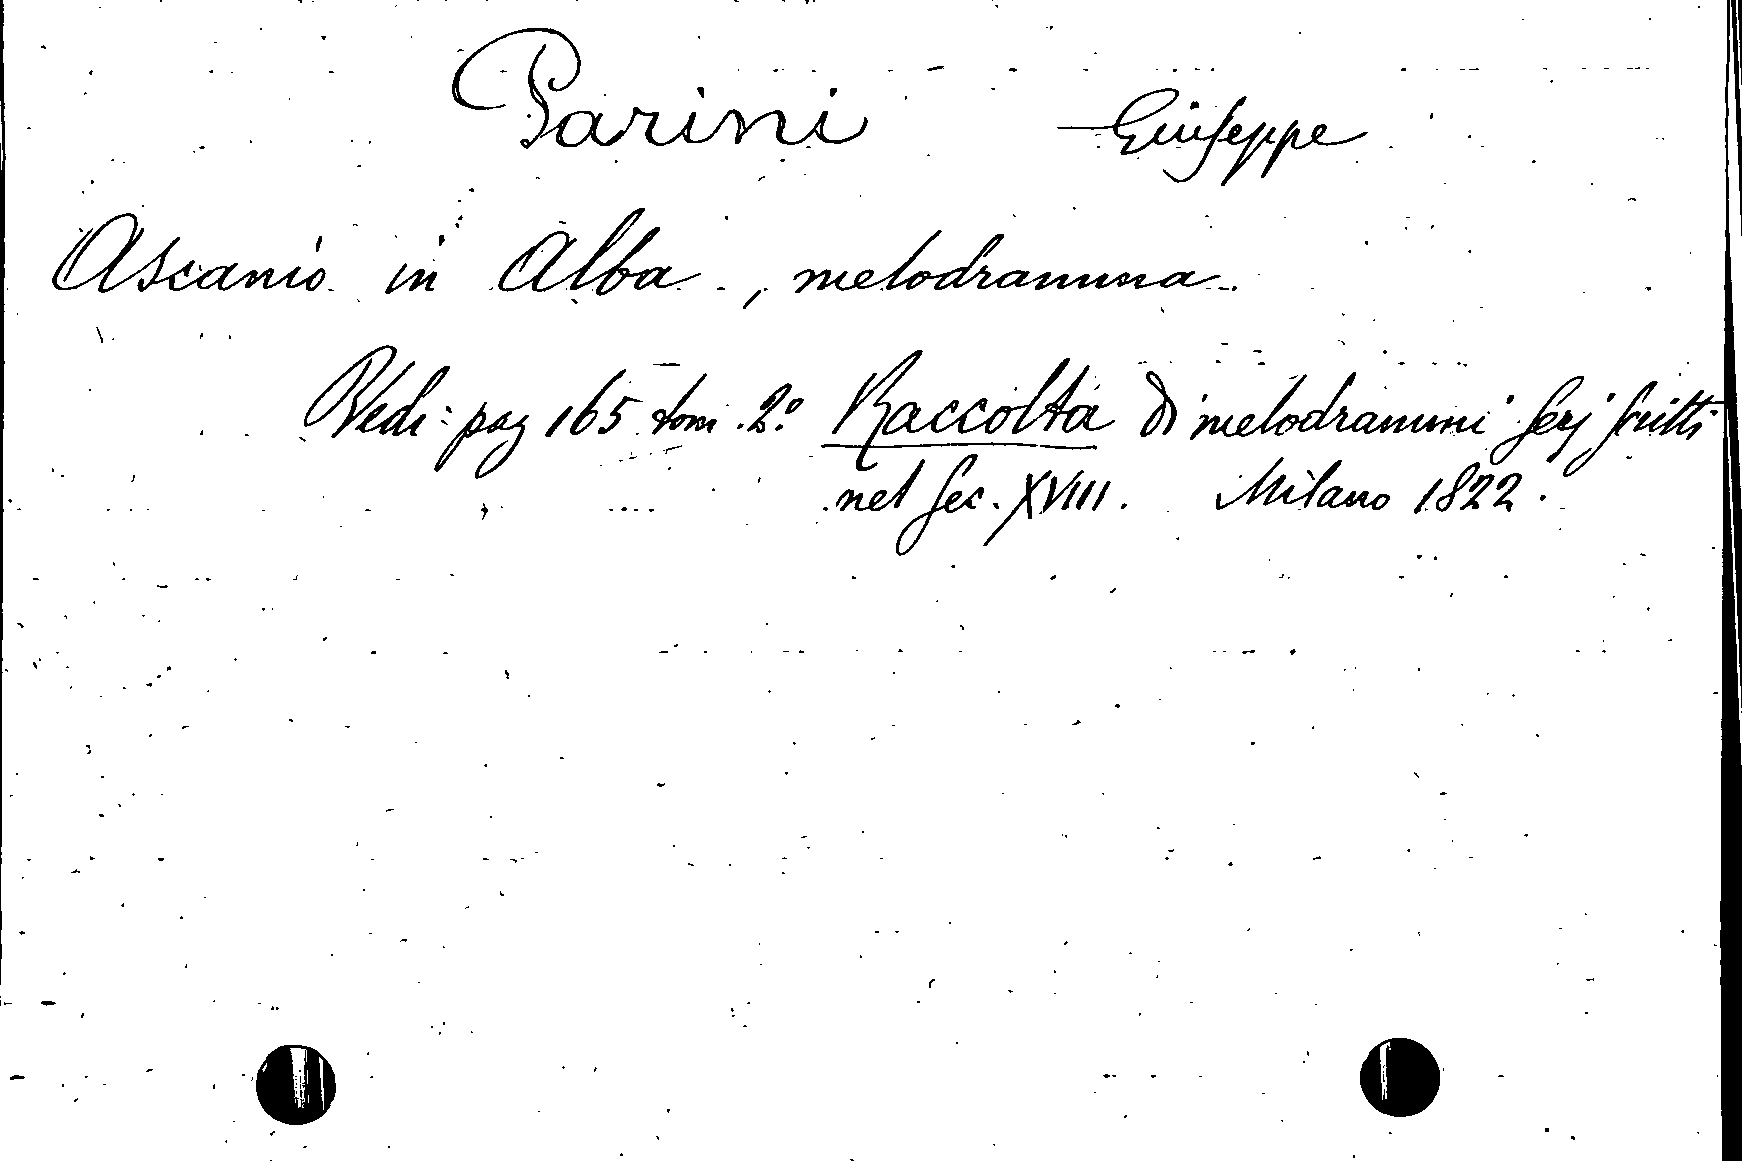 Parini Giuseppe
Ascanio in Alba, melodramma
Vedi: pag 165 tom. 2.º Raccolta di melodrammi serj scritti
nel sec. XVIII. Milano 1822.